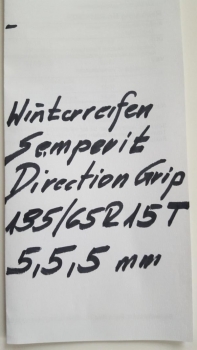 -
Winterreifen
Semperit
Direction Grip
195/65R15T
5,5,5 mm